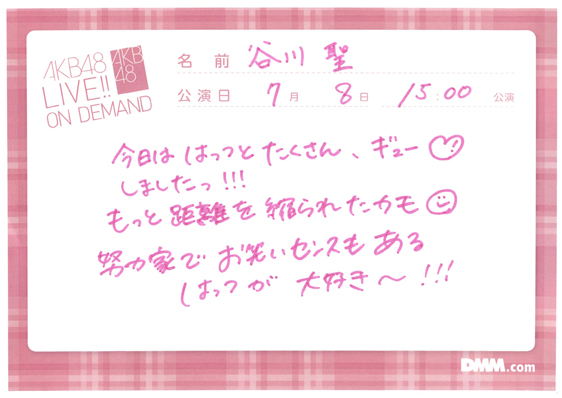 AKB48
LIVE!!
ON DEMAND
AKB
48
名前 谷川 聖
公演日 7月 8日 15:00 公演
今日は はっつと たくさん、ギュー♡
しましたっ!!!
もっと 距離を 縮られたカモ☺
努力家で お笑いセンスも ある
はっつが 大好き〜!!!
DMM.com